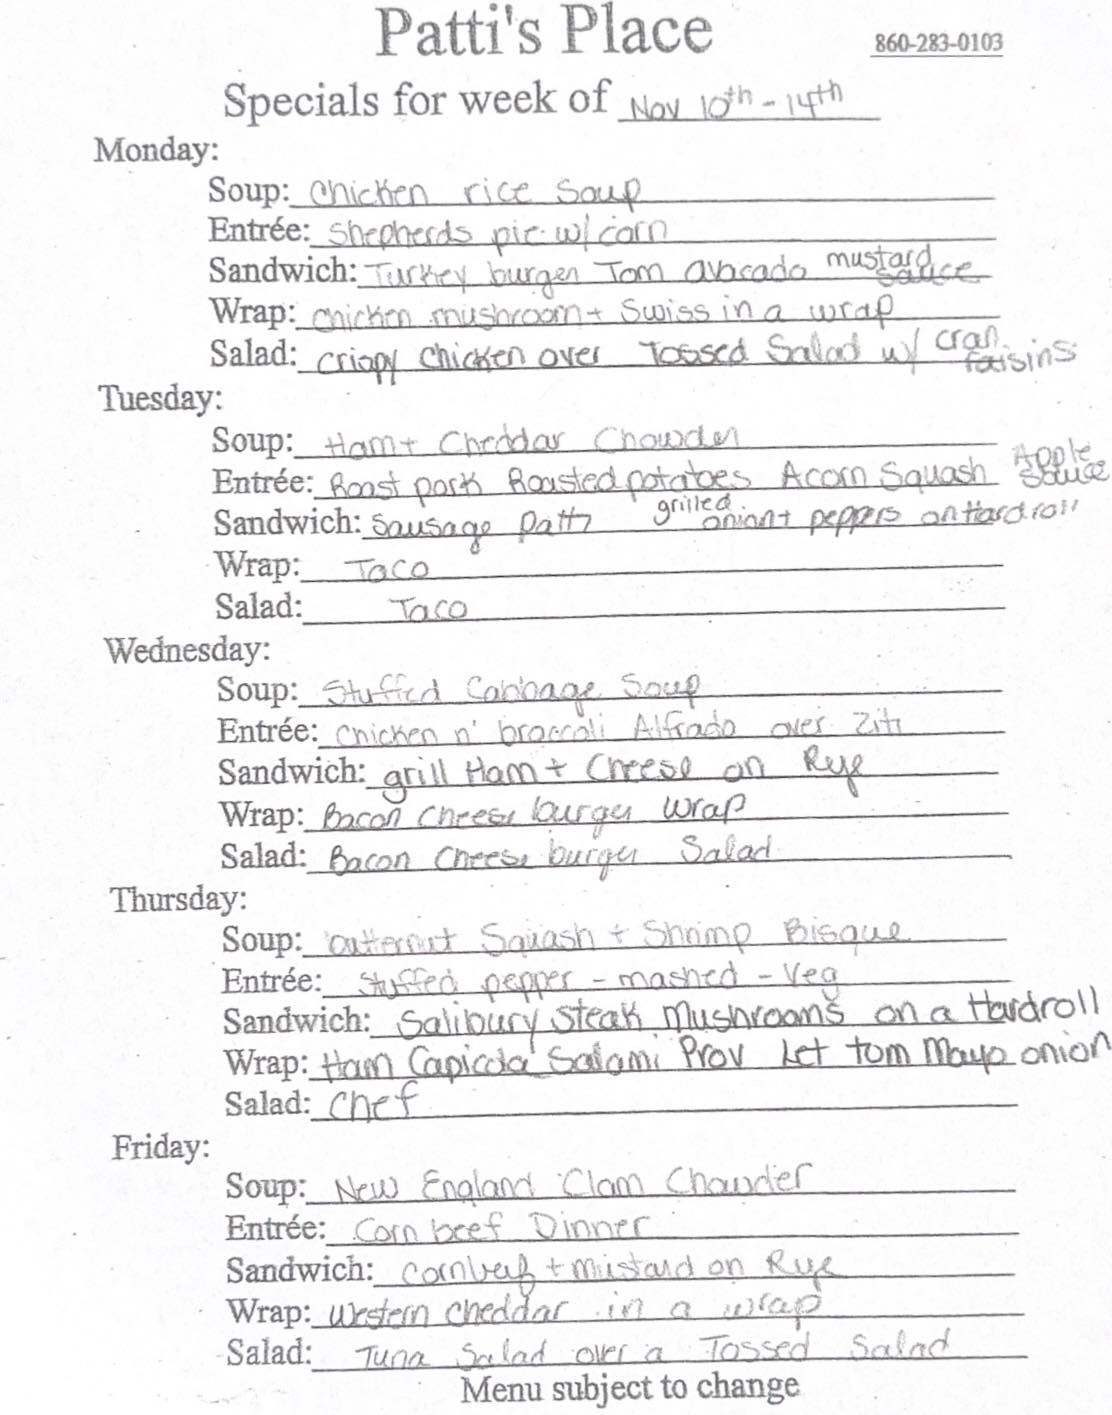 Patti's Place
860-283-0103
Specials for week of Nov 10th - 14th
Monday:
Soup: Chicken rice Soup
Entrée: Shepherds pie w/ corn
Sandwich: Turkey burger Tom avacado mustard sauce
Wrap: Chicken mushroom + Swiss in a wrap
Salad: Crispy Chicken over Tossed Salad w/ cran raisins
Tuesday:
Soup: Ham + Cheddar Chowder
Entrée: Roast pork Roasted potatoes Acorn Squash Apple sauce
Sandwich: Sausage Patty grilled onion + peppers on Hard roll
Wrap: Taco
Salad: Taco
Wednesday:
Soup: Stuffed Cabbage Soup
Entrée: Chicken n' broccoli Alfrado over Ziti
Sandwich: grill Ham + Cheese on Rye
Wrap: Bacon Cheese burger wrap
Salad: Bacon Cheese burger Salad
Thursday:
Soup: butternut Squash + Shrimp Bisque
Entrée: Stuffed pepper - mashed - Veg
Sandwich: Salibury Steak Mushrooms on a Hardroll
Wrap: Ham Capicola Salami Prov Let tom Mayo onion
Salad: Chef
Friday:
Soup: New England Clam Chowder
Entrée: Corn beef Dinner
Sandwich: Cornbeef + mustard on Rye
Wrap: Western Cheddar in a wrap
Salad: Tuna Salad over a Tossed Salad
Menu subject to change